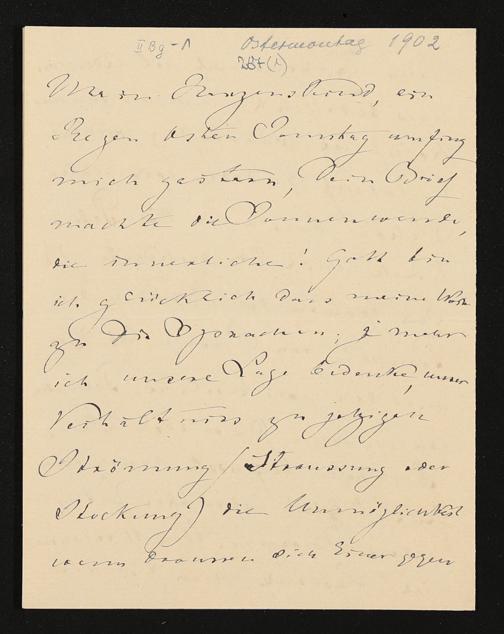 II Bg - 1
Ostermontag 1902
Mein Herzenskind, ein
Regen Oster Sonntag umfing
mich gestern, Dein Brief
machte die Sonnenwende,
die innerliche! Gott bin
ich glücklich dass meine Worte
zu Dir sprachen; je mehr
ich unsere Lage bedenke, unser
Verhältniss zu jetzigen
Strömung (Straussung oder
Stockung) die Unmöglichkeit
wenn draussen sich Einer gegen